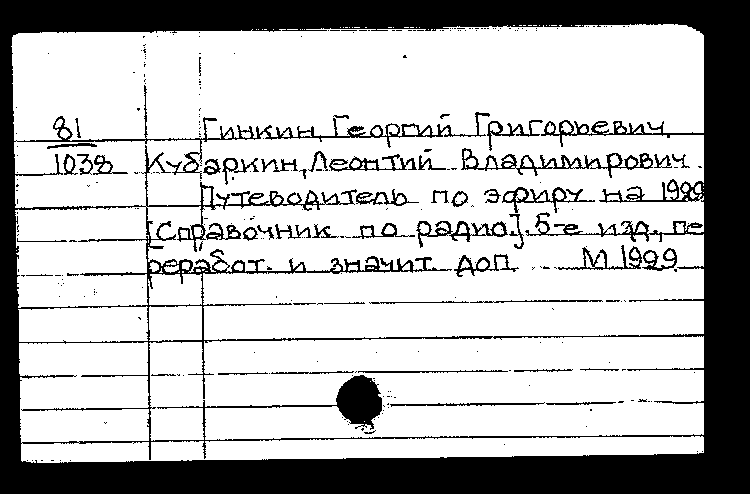 81 Гинкин, Георгий Григорьевич.
1038 Кубаркин, Леонтий Владимирович.
Путеводитель по эфиру на 1929
[Справочник по радио.]. 5-е изд., пе
реработ. и значит. доп. М 1929